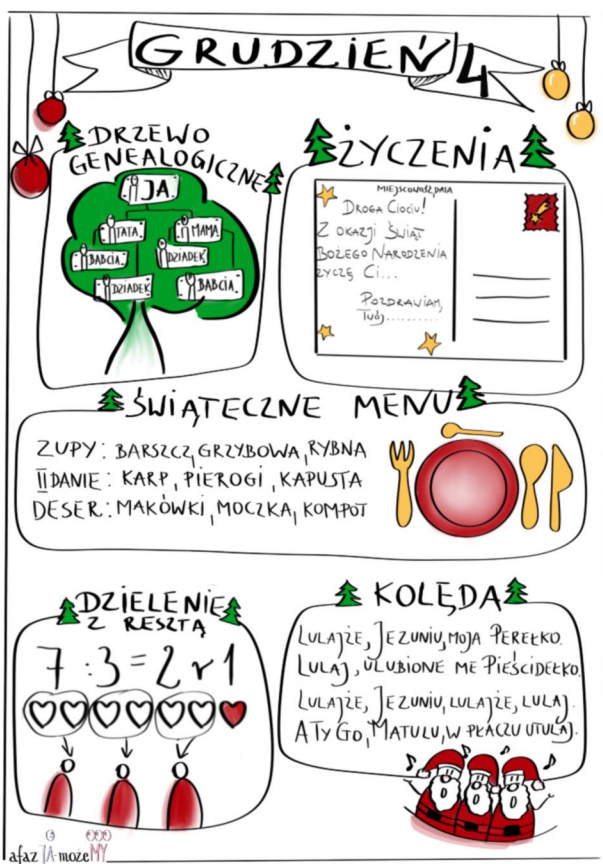 GRUDZIEŃ 4
DRZEWO
GENEALOGICZNE
JA
TATA
MAMA
BABCIA
DZIADEK
DZIADEK
BABCIA
ŻYCZENIA
MIEJSCOWOŚĆ, DATA
DROGA CIOCIU!
Z OKAZJI ŚWIĄT
BOŻEGO NARODZENIA
ŻYCZĘ CI...
POZDRAWIAM,
TWÓJ..........
ŚWIĄTECZNE MENU
ZUPY: BARSZCZ, GRZYBOWA, RYBNA
II DANIE: KARP, PIEROGI, KAPUSTA
DESER: MAKÓWKI, MOCZKA, KOMPOT
DZIELENIE
Z RESZTĄ
7:3=2 r 1
KOLĘDA
LULAJŻE, JEZUNIU, MOJA PEREŁKO.
LULAJ, ULUBIONE ME PIEŚCIDEŁKO.
LULAJŻE, JEZUNIU, LULAJŻE, LULAJ.
A TY GO, MATULU, W PŁACZU UTULAJ.
afaz JA-może MY